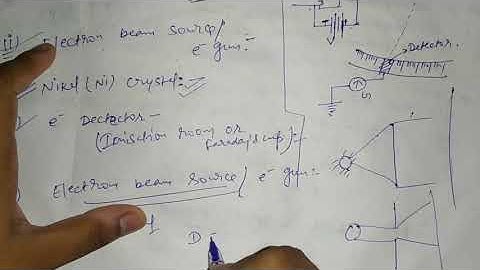 ii) Electron beam source/
e⁻ gun:-
Nikel (Ni) crystel:-
e⁻ Dectector -
(Ionisction room or
faraday's cup):-
Electron beam source/ e⁻ gun:-
D -
Detector.
G